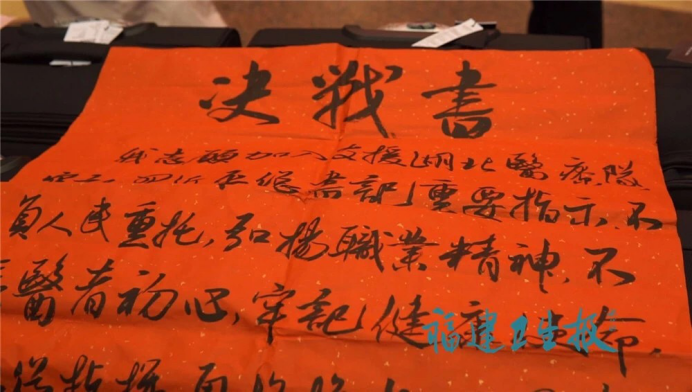 决战書
我志願加入支援湖北醫療隊
平總書記重要指示,不
負人民重托,弘揚職業精神,不
醫者初心,牢記健康使命,
指揮
福建卫生报